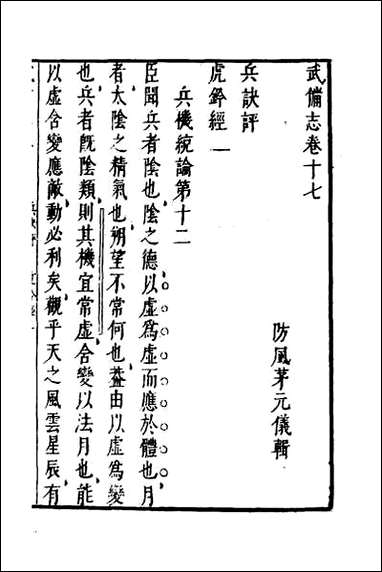 武備志卷十七
防風茅元儀輯
兵訣評
虎鈐經一
兵機統論第十二
臣聞兵者陰也陰之德以虛為虛而應於體也月
者太陰之精氣也朔望不常何也葢由以虛為變
也兵者旣陰類則其機宜常虛含變以法月也能
以虛含變應敵動必利矣觀乎天之風雲星辰有